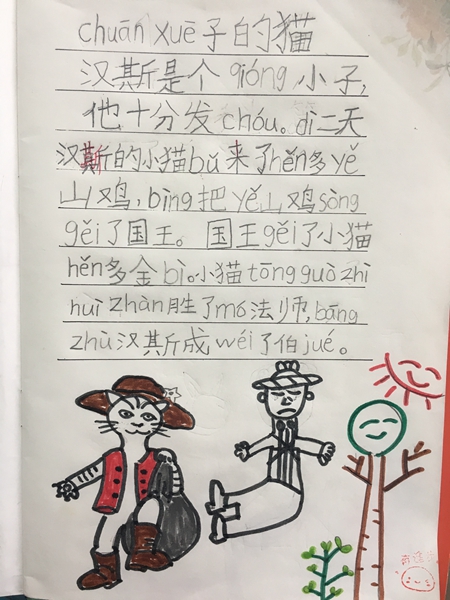 chuān xuē子的猫
汉斯是个qióng小子,
他十分发chóu。dì二天
汉斯的小猫bǔ来了hěn多yě
山鸡,bìng把yě山鸡sòng
gěi了国王。国王gěi了小猫
hěn多金bì。小猫tōng guò zhì
huì zhàn胜了mó法师,bāng
zhù汉斯成wéi了伯jué。